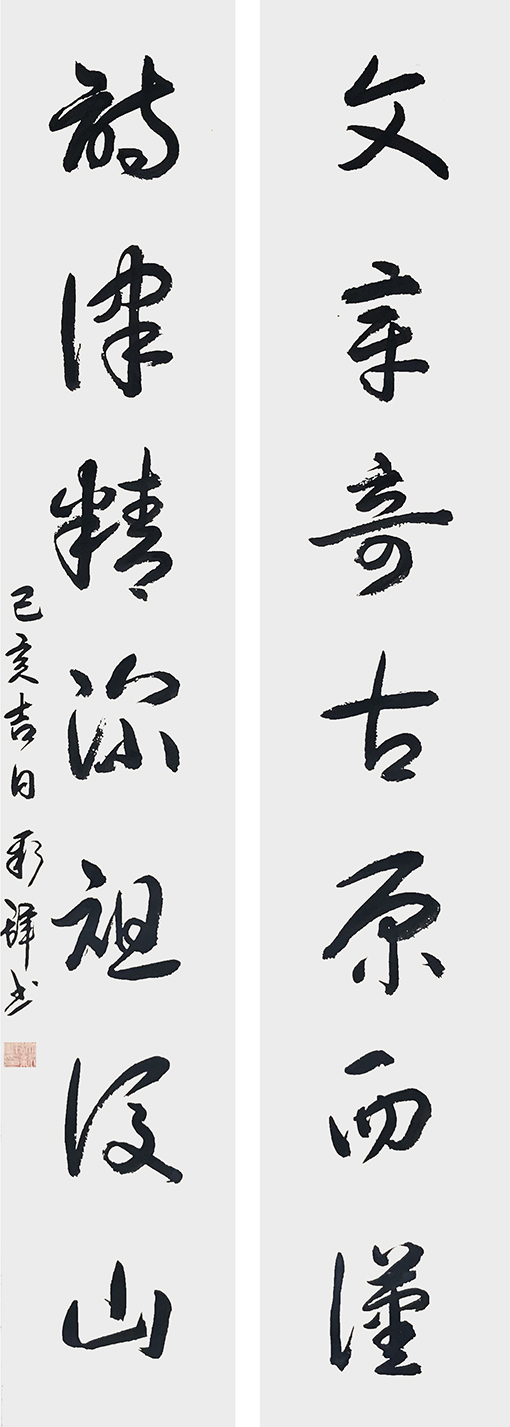 文章奇古原西漢
詩律精深祖後山
己亥吉日 书